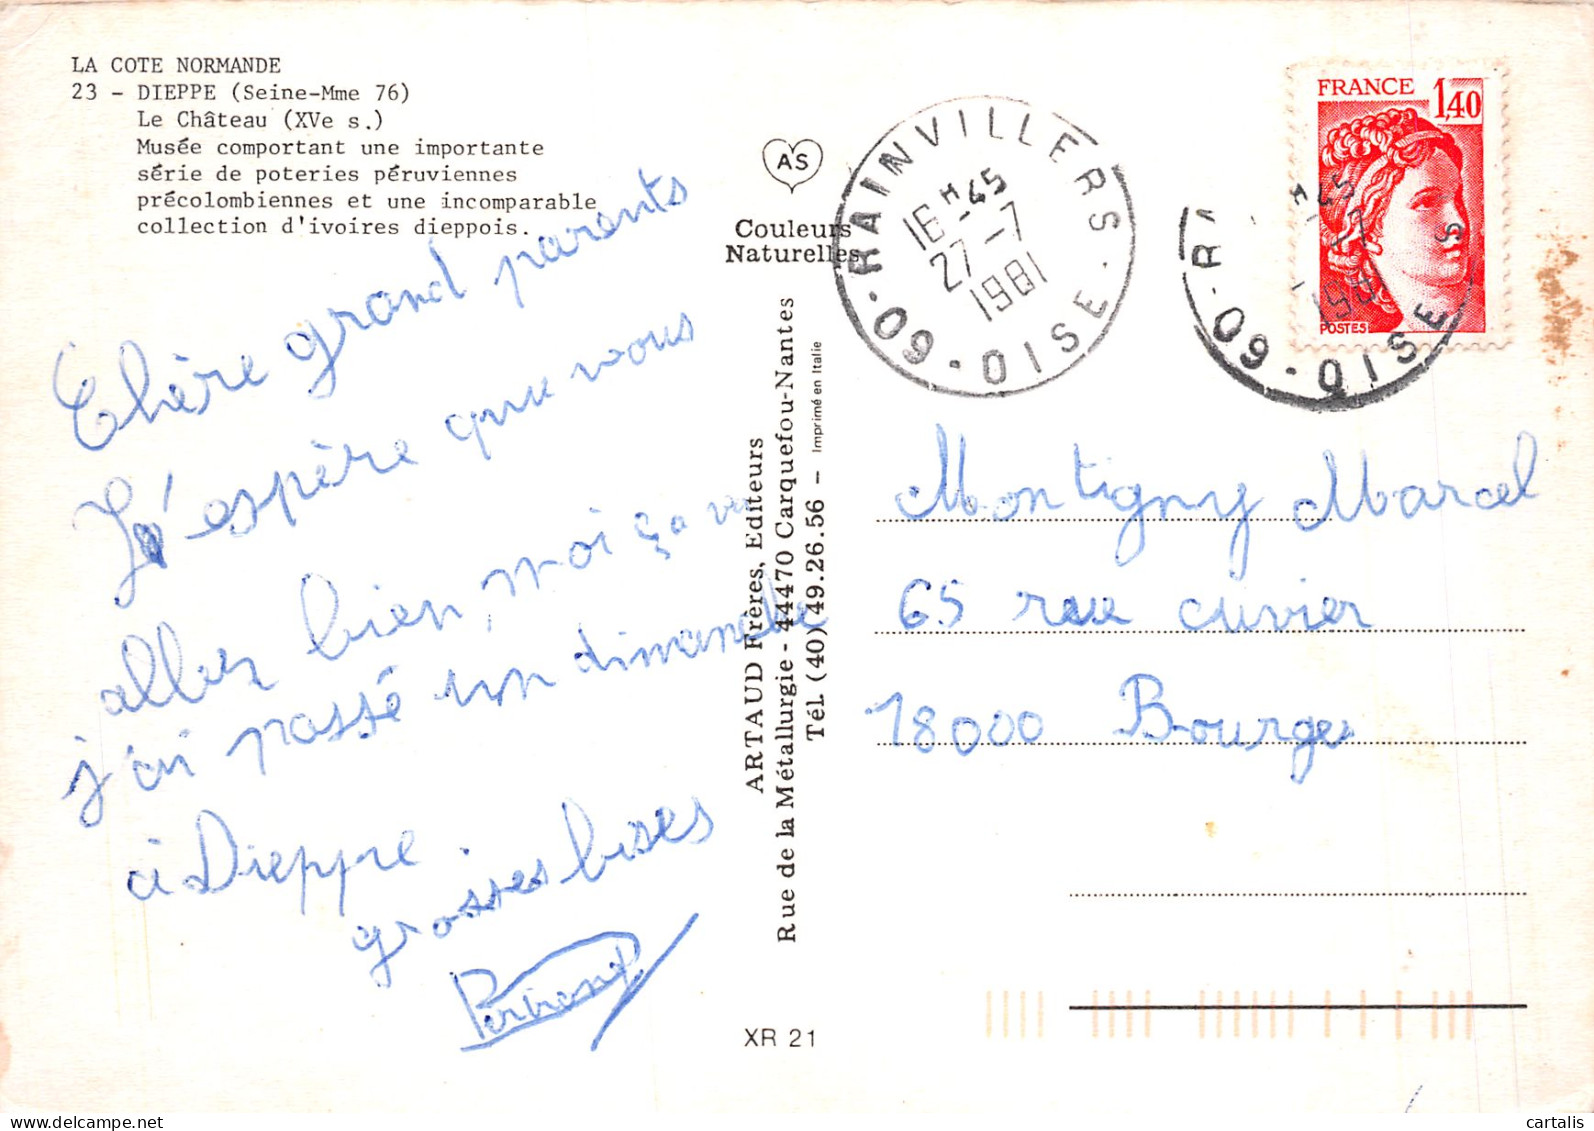 LA COTE NORMANDE
23 - DIEPPE (Seine-Mme 76)
Le Château (XVe s.)
Musée comportant une importante
série de poteries péruviennes
précolombiennes et une incomparable
collection d'ivoires dieppois.
Chère grand parents
J'espère que vous
allez bien, moi ça va
j'ai passé un dimanche
à Dieppe
grosses bises
AS
Couleurs
Naturelles
ARTAUD Frères, Editeurs
Rue de la Métallurgie - 44470 Carquefou-Nantes
Tél. (40) 49.26.56 - Imprimé en Italie
XR 21
RAINVILLERS
16 H 45
27-7
1981
60 - OISE
FRANCE 1,40
POSTES
R
H 45
1981
60 - OISE
Montigny Marcel
65 rue cuvier
18000 Bourges
cartalis